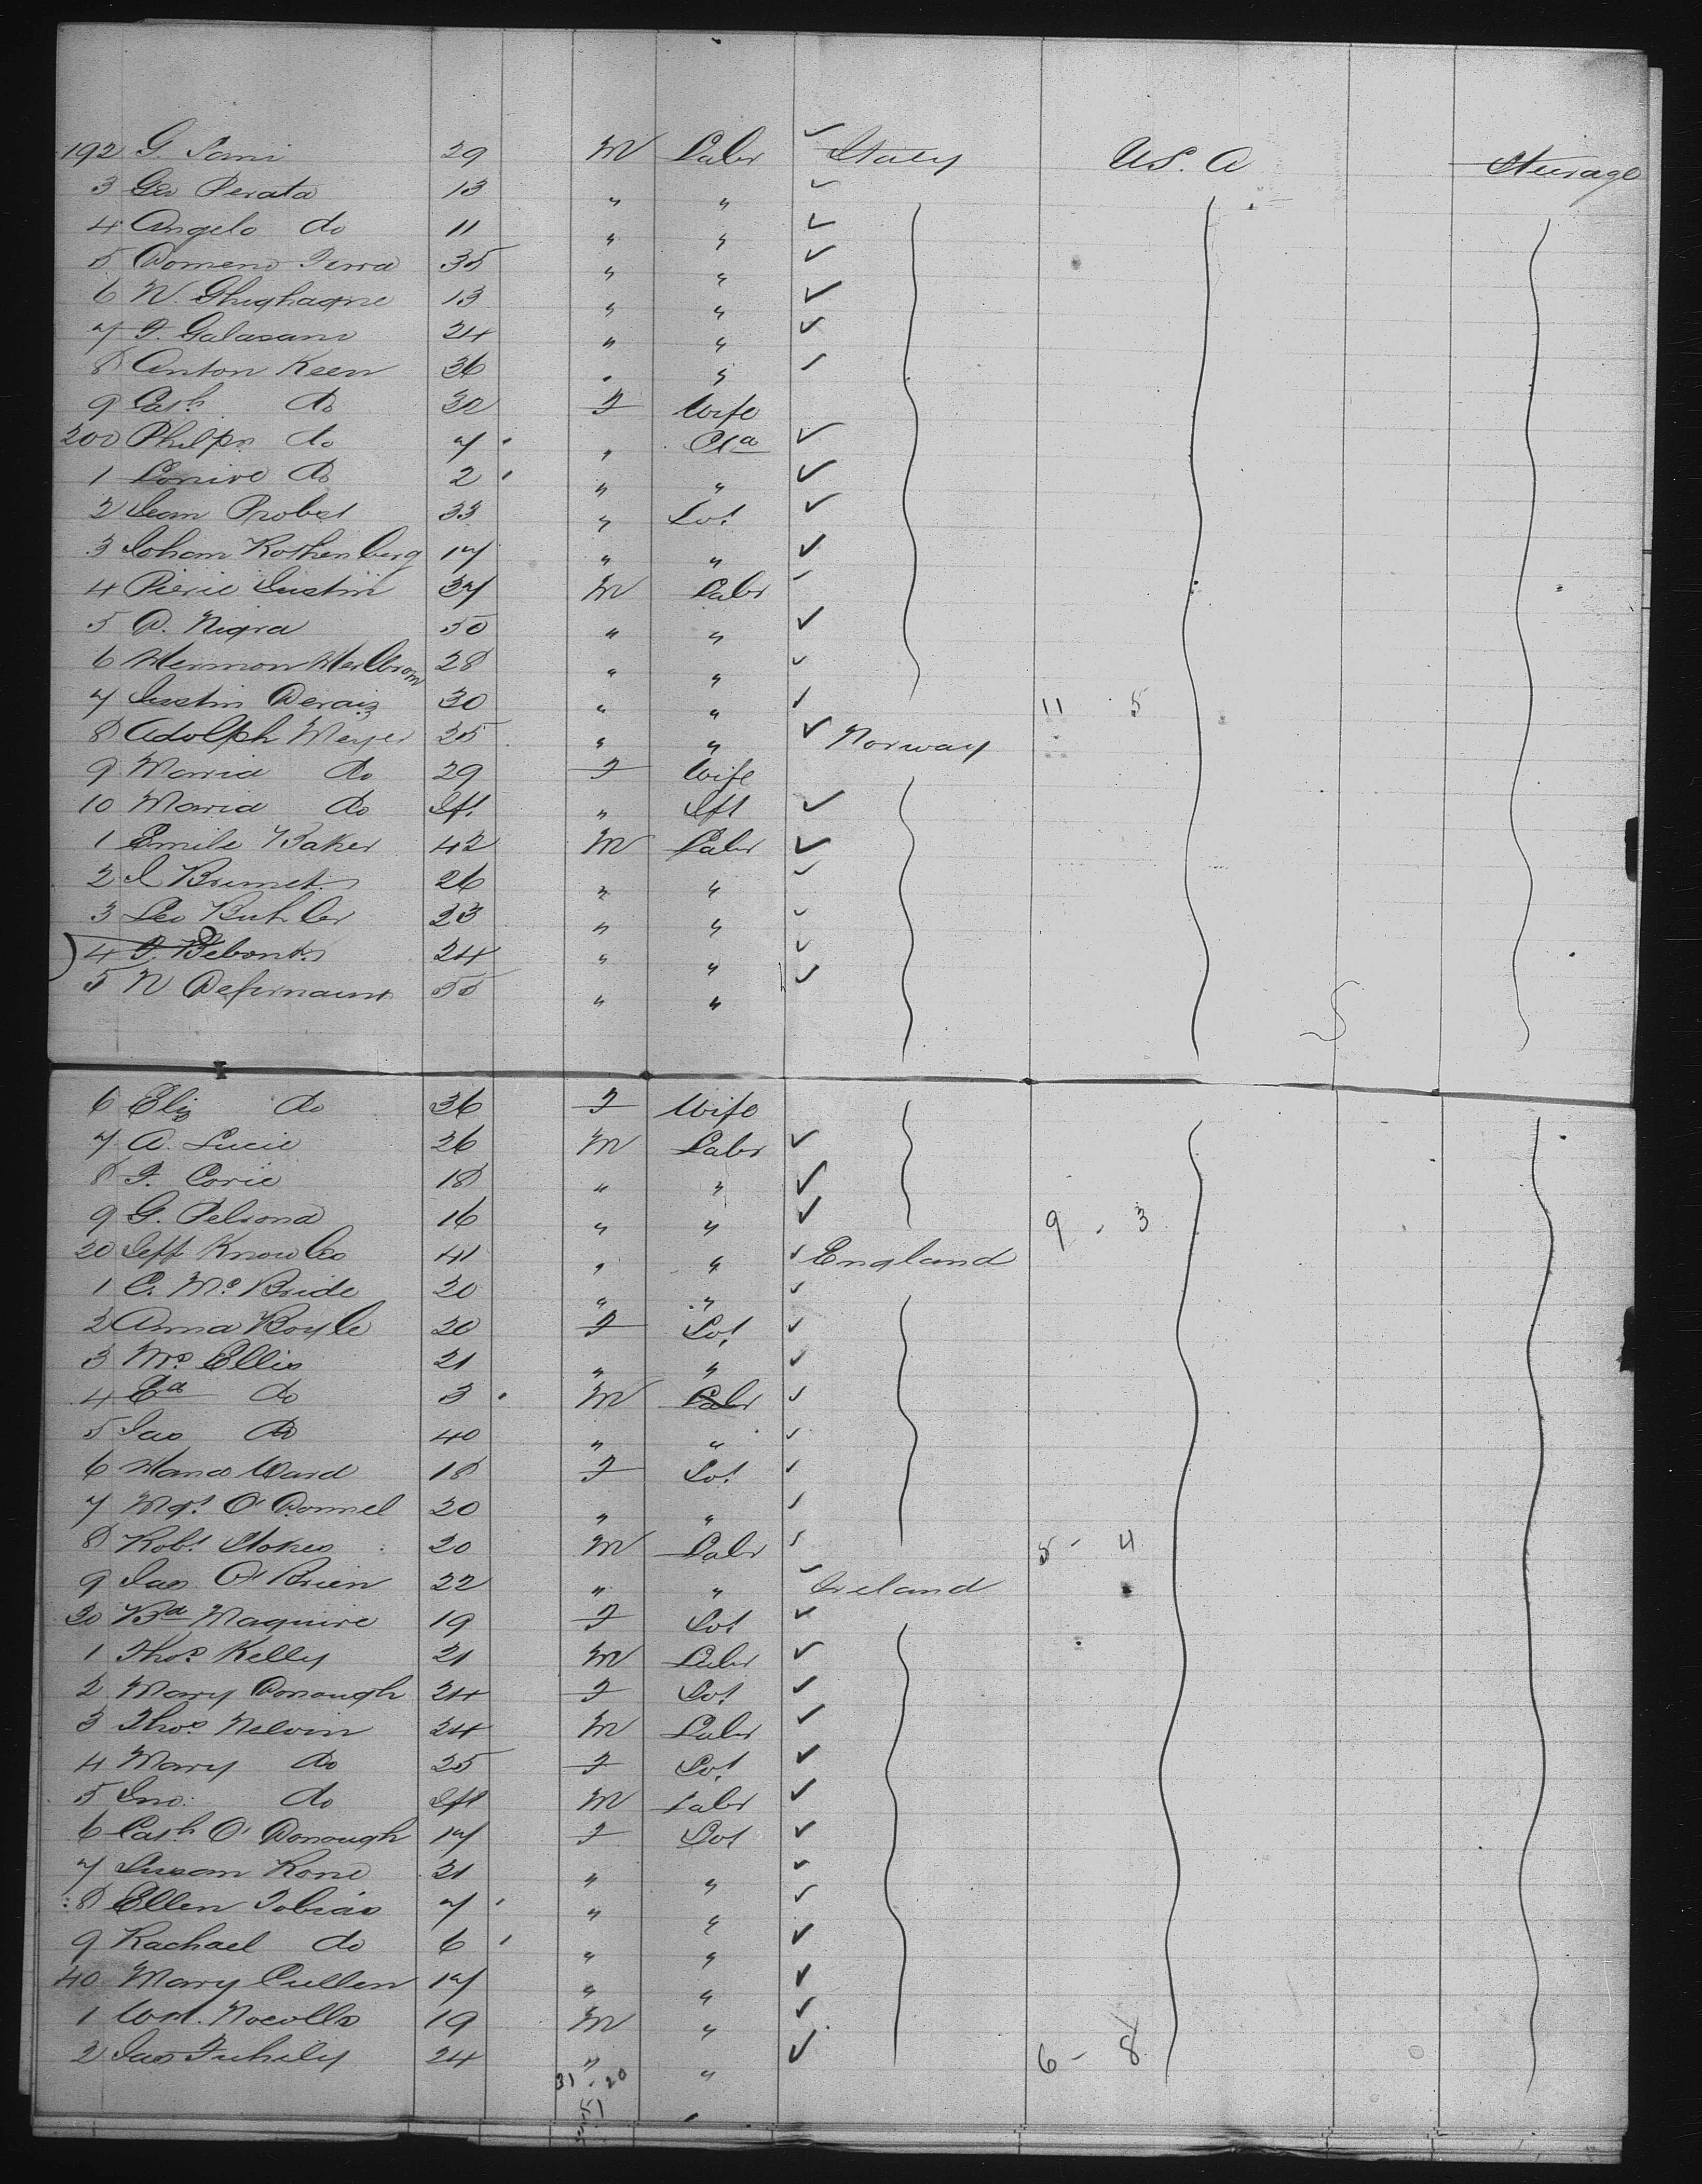 192 G. Sami 29 M Labr Italy U.S.A Steerage
3 Geo Perata 13 " "
4 Angelo do 11 " "
5 Domeno Terra 35 " "
6 N. Ghighagne 13 " "
7 F. Galasano 24 " "
8 Anton Keen 36 " "
9 Cath do 32 F Wife
200 Philpr. do 7 " Cha
1 do 2 " "
2 Leon Probst 33 " Sot
3 Johan Rothenberg 17 " "
4 Pierie Justin 37 M Labr
5 D. Nigra 50 " "
6 Hermon 28 " "
7 Justin Deraiz 30 " " 11 5
8 Adolph Meyer 25 " " Norway
9 Maria do 29 F Wife
10 Maria do Ift " Ift
1 Emile Baker 42 M Labr
2 26 " "
3 Leo Buhler 23 " "
4 24 " "
5 N 55 " "
6 Eliz do 36 F Wife
7 A. Lucie 26 M Labr
8 F. Corie 18 " "
9 G. Pelsona 16 " " 9 - 3
20 Jeff Knowles 41 " " England
1 C. McBride 20 " "
2 Anna Boyle 20 F Sot
3 Mrs Ellis 21 " "
4 Ed do 3 M Labr
5 Jas do 40 " "
6 Ward 18 F Sot
7 Mgt O'Donnel 20 " "
8 Robt Stokes 20 M Labr 5 - 4
9 Jas O'Brien 22 " " Ireland
30 Bd Maguire 19 F Sot
1 Thos Kelly 21 M Labr
2 Mary Donough 24 F Sot
3 Thos Nelvin 24 M Labr
4 Mary do 25 F Sot
5 Jno. do Ift M Labr
6 Cath O'Donough 17 F Sot
7 Susan Kane 21 " "
8 Ellen Tobias 7 " "
9 Rachael do 6 " "
40 Mary Cullen 17 " "
1 Wm. 19 M "
2 Jas 24 " " 6 - 8
31 - 20
51